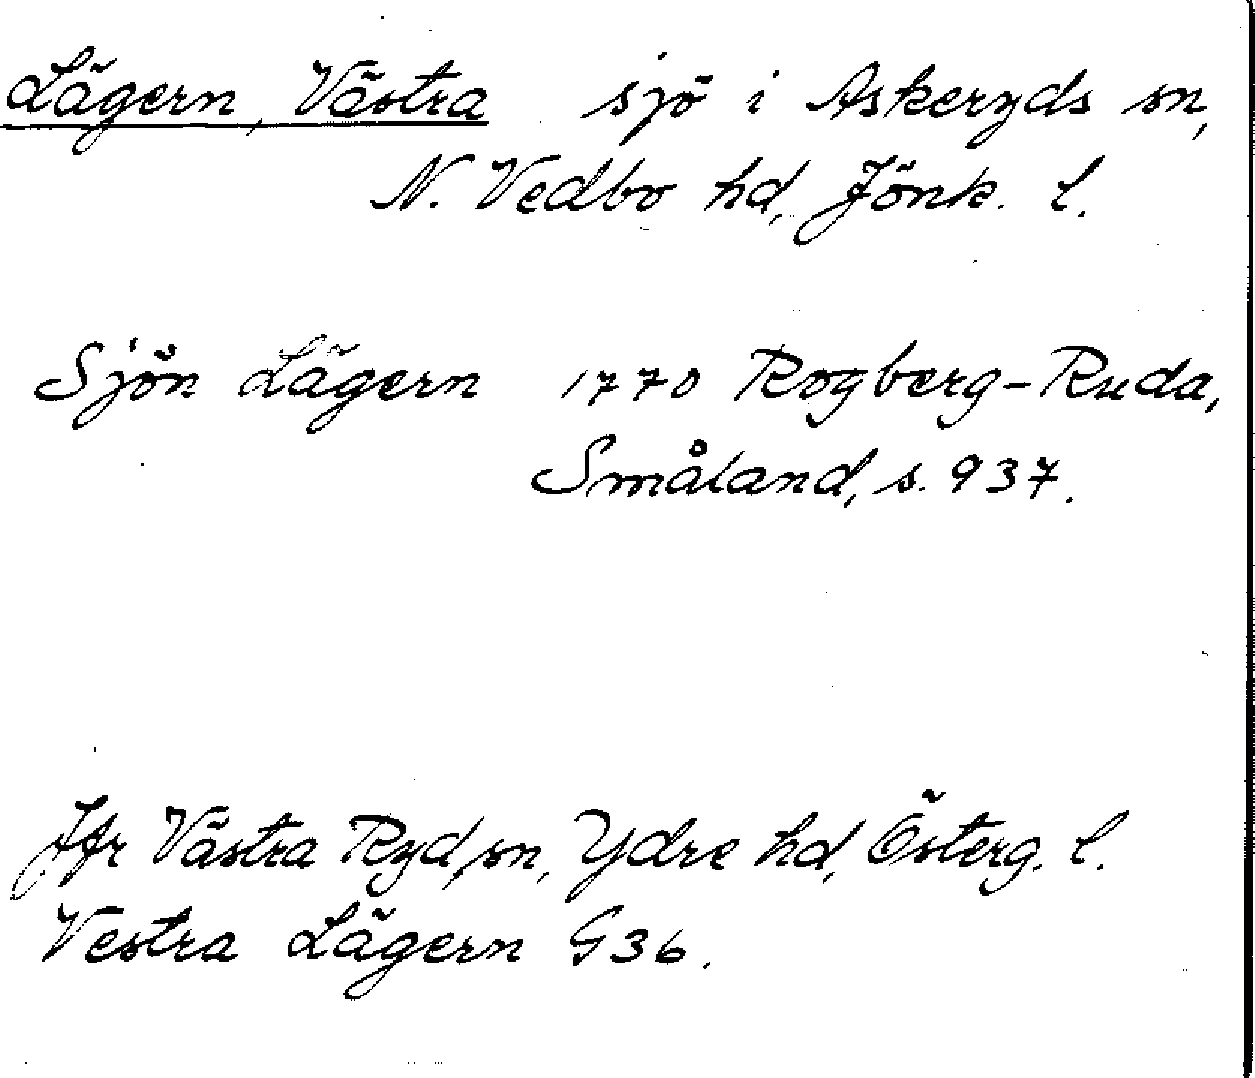 Lägern, Västra sjö i Askeryds sn,
N. Vedbo hd, Jönk. l.
Sjön Lägern 1770 Rogberg-Ruda,
Småland, s. 937.
Jfr Västra Ryd, sn, Ydre hd, Österg. l.
Vestra Lägern G36.